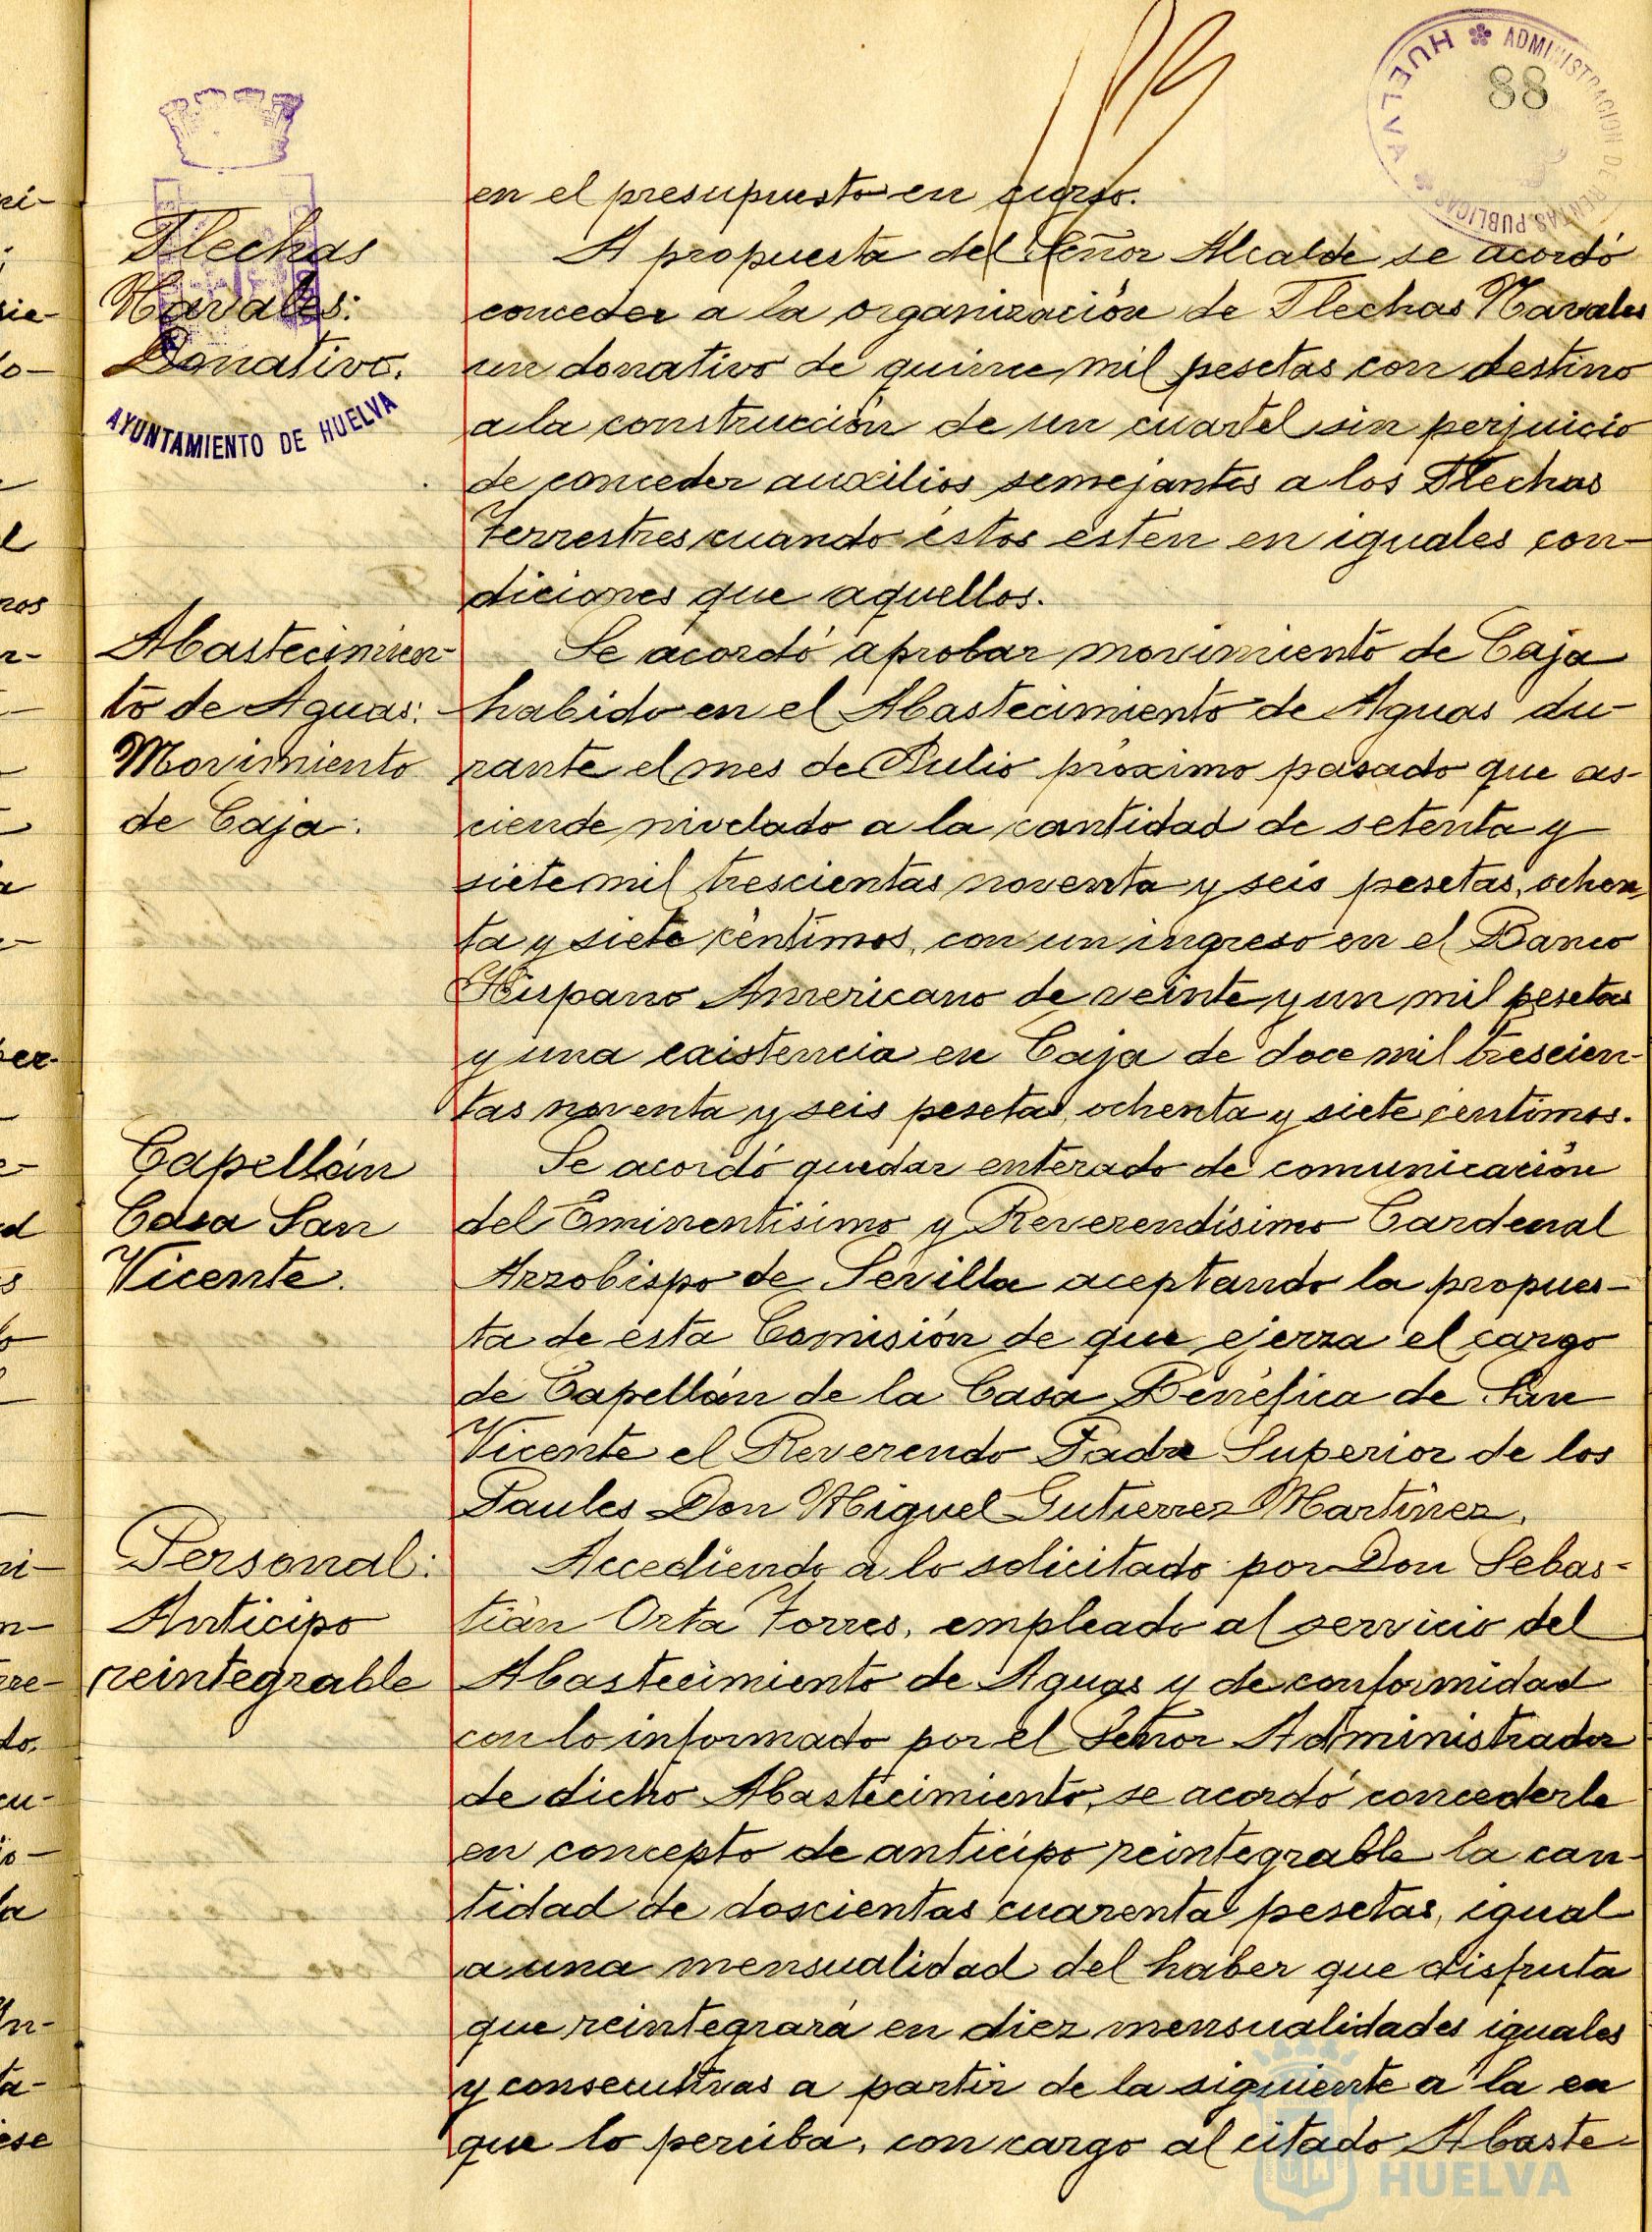 88
HUELVA ADMINISTRACION DE RENTAS PUBLICAS
en el presupuesto en curso.
Flechas
Navales:
Donativo.
AYUNTAMIENTO DE HUELVA
A propuesta del Señor Alcalde se acordó
conceder a la organización de Flechas Navales
un donativo de quince mil pesetas con destino
a la construcción de un cuartel sin perjuicio
de conceder auxilios semejantes a los Flechas
Terrestres cuando éstos estén en iguales con-
diciones que aquellos.
Abastecimien-
to de Aguas:
Movimiento
de Caja:
Se acordó aprobar movimiento de Caja
habido en el Abastecimiento de Aguas du-
rante el mes de Julio próximo pasado que as-
ciende nivelado a la cantidad de setenta y
siete mil trescientas noventa y seis pesetas, ochen
ta y siete céntimos, con un ingreso en el Banco
Hispano Americano de veinte y un mil pesetas
y una existencia en Caja de doce mil trescien-
tas noventa y seis pesetas, ochenta y siete centimos.
Capellán
Casa San
Vicente.
Se acordó quedar enterado de comunicación
del Eminentísimo y Reverendísimo Cardenal
Arzobispo de Sevilla aceptando la propues-
ta de ésta Comisión de que ejerza el cargo
de Capellán de la Casa Benéfica de San
Vicente el Reverendo Padre Superior de los
Paules Don Miguel Gutierrez Martínez.
Personal:
Anticipo
reintegrable
Accediendo a lo solicitado por Don Sebas-
tián Orta Torres, empleado al servicio del
Abastecimiento de Aguas y de conformidad
con lo informado por el Señor Administrador
de dicho Abastecimiento, se acordó concederle
en concepto de anticipo reintegrable la can-
tidad de doscientas cuarenta pesetas, igual
a una mensualidad del haber que disfruta
que reintegrará en diez mensualidades iguales
y consecutivas a partir de la siguiente a la en
que lo perciba, con cargo al citado Abaste-
HUELVA